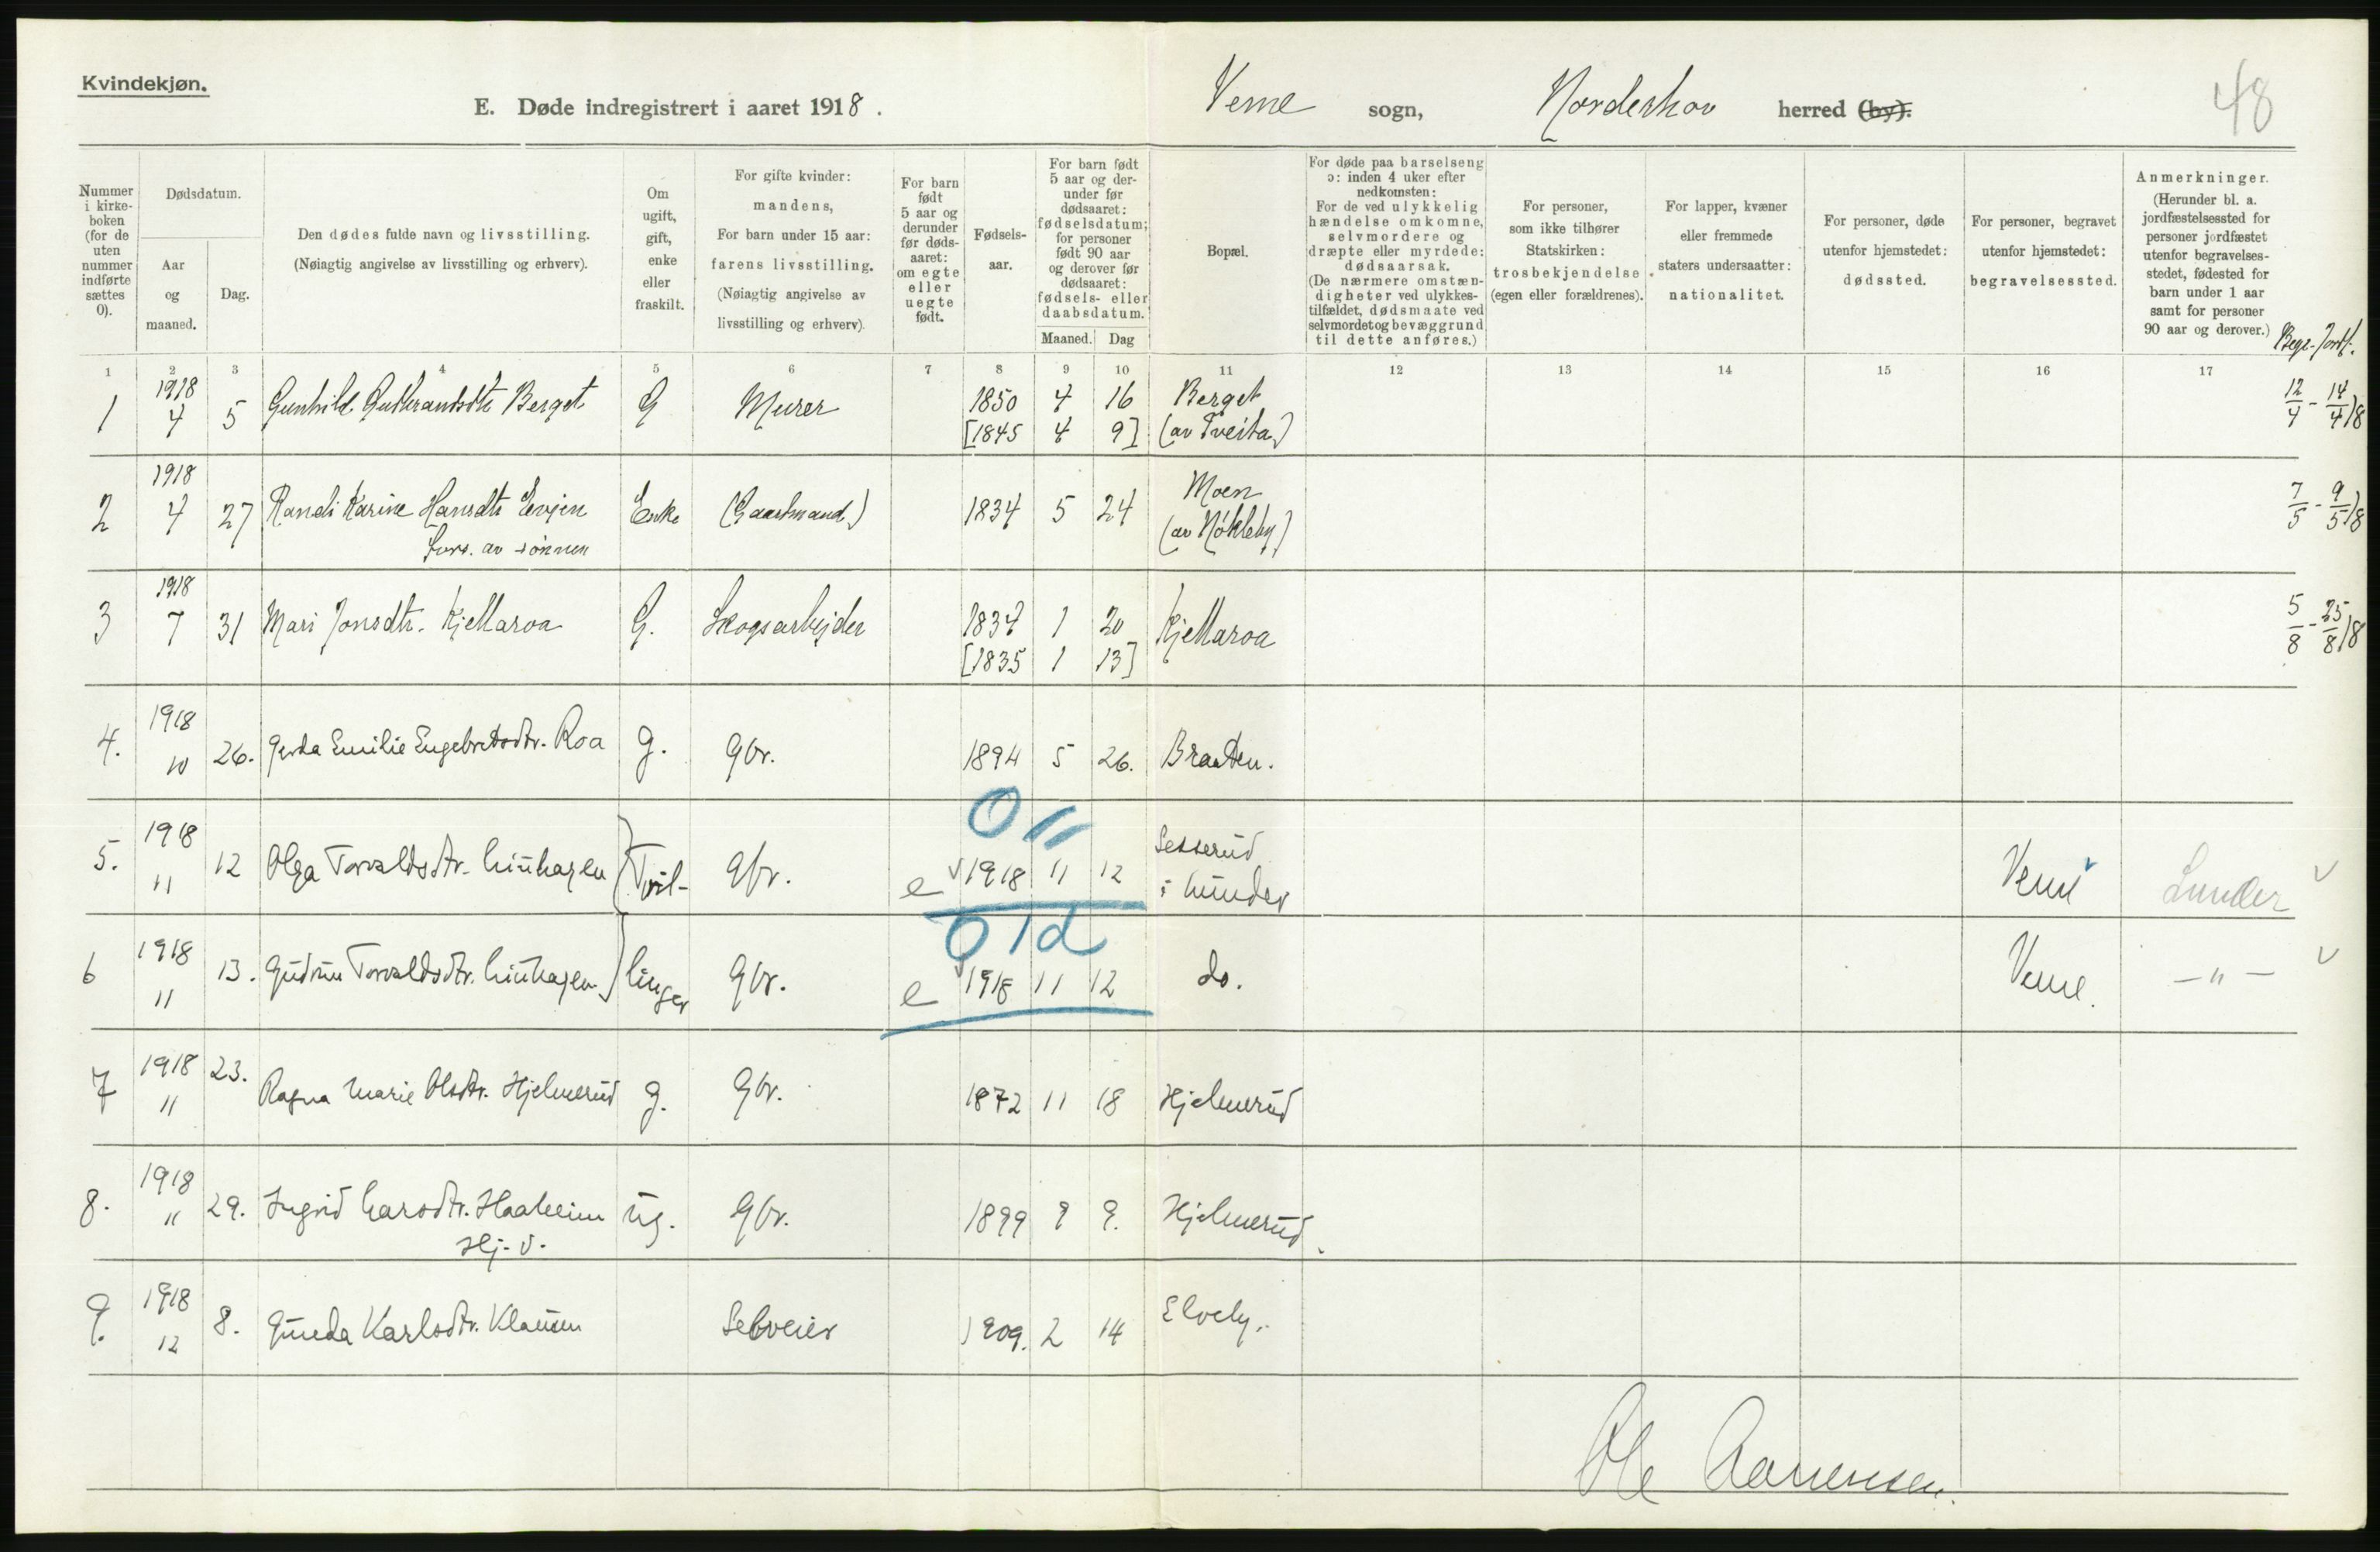 Kvindekjøn.
E. Døde indregistrert i aaret 1918.
Veme sogn, Norderhov herred (by).
48
Nummer i kirkeboken (for de uten nummer indførte sættes 0).
Dødsdatum.
Aar og maaned.
Dag.
Den dødes fulde navn og livsstilling.
(Nøiagtig angivelse av livsstilling og erhverv).
Om ugift, gift, enke eller fraskilt.
For gifte kvinder: mandens,
For barn under 15 aar: farens livsstilling.
(Nøiagtig angivelse av livsstilling og erhverv).
For barn født 5 aar og derunder før dødsaaret: om egte eller uegte født.
Fødselsaar.
For barn født 5 aar og derunder før dødsaaret: fødselsdatum; for personer født 90 aar og derover før dødsaaret: fødsels- eller daabsdatum.
Maaned. Dag
Bopæl.
For døde paa barselseng ɔ: inden 4 uker efter nedkomsten:
For de ved ulykkelig hændelse omkomne, selvmordere og dræpte eller myrdede: dødsaarsak.
(De nærmere omstændigheter ved ulykkestilfældet, dødsmaate ved selvmordet og bevæggrund til dette anføres.)
For personer, som ikke tilhører Statskirken: trosbekjendelse (egen eller forældrenes).
For lapper, kvæner eller fremmede staters undersaatter: nationalitet.
For personer, døde utenfor hjemstedet: dødssted.
For personer, begravet utenfor hjemstedet: begravelsessted.
Anmerkninger.
(Herunder bl. a. jordfæstelsessted for personer jordfæstet utenfor begravelsesstedet, fødested for barn under 1 aar samt for personer 90 aar og derover.)
Begr. Jordf.
1 2 3 4 5 6 7 8 9 10 11 12 13 14 15 16 17
1 1918 4 5 Gunhild Gulbrandsdtr Berget G Murer 1850 4 16 Berget 12/4 - 14/4 18
[1845 4 9] (av Tveita)
2 1918 4 27 Randi Karine Hansdtr Evjen Enke (Gaardmand) 1834 5 24 Moen 7/5 - 9/5 18
Fors. av sønnen (av Nökleby)
3 1918 7 31 Mari Jonsdtr. Kjellaroa G. Skogsarbejder 1834 1 20 Kjellaroa 5/8 - 25/8 18
[1835 1 13]
4. 1918 10 26. Gerda Emilie Engebretsdtr. Roa g. Gbr. 1894 5 26. Braaten.
0 11
5. 1918 11 12 Olga Torvaldsdtr. Linhagen Tvil- Gbr. e 1918 11 12 Sesserud i Lunder Veme Lunder
0 1d
6 1918 11 13. Gudrun Torvaldsdtr. Linhagen linger Gbr. e 1918 11 12 do. Veme. - " -
7 1918 11 23. Ragna Marie Olsdtr. Hjelmerud g. Gbr. 1872 11 18 Hjelmerud
8. 1918 11 29. Ingrid Larsdtr. Haaheim ug. Gbr. 1899 9 9. Hjelmerud.
Hj. v.
9. 1918 12 8. Karlsdtr. Klausen Selveier 1909. 2 14 Elvely.
Ole